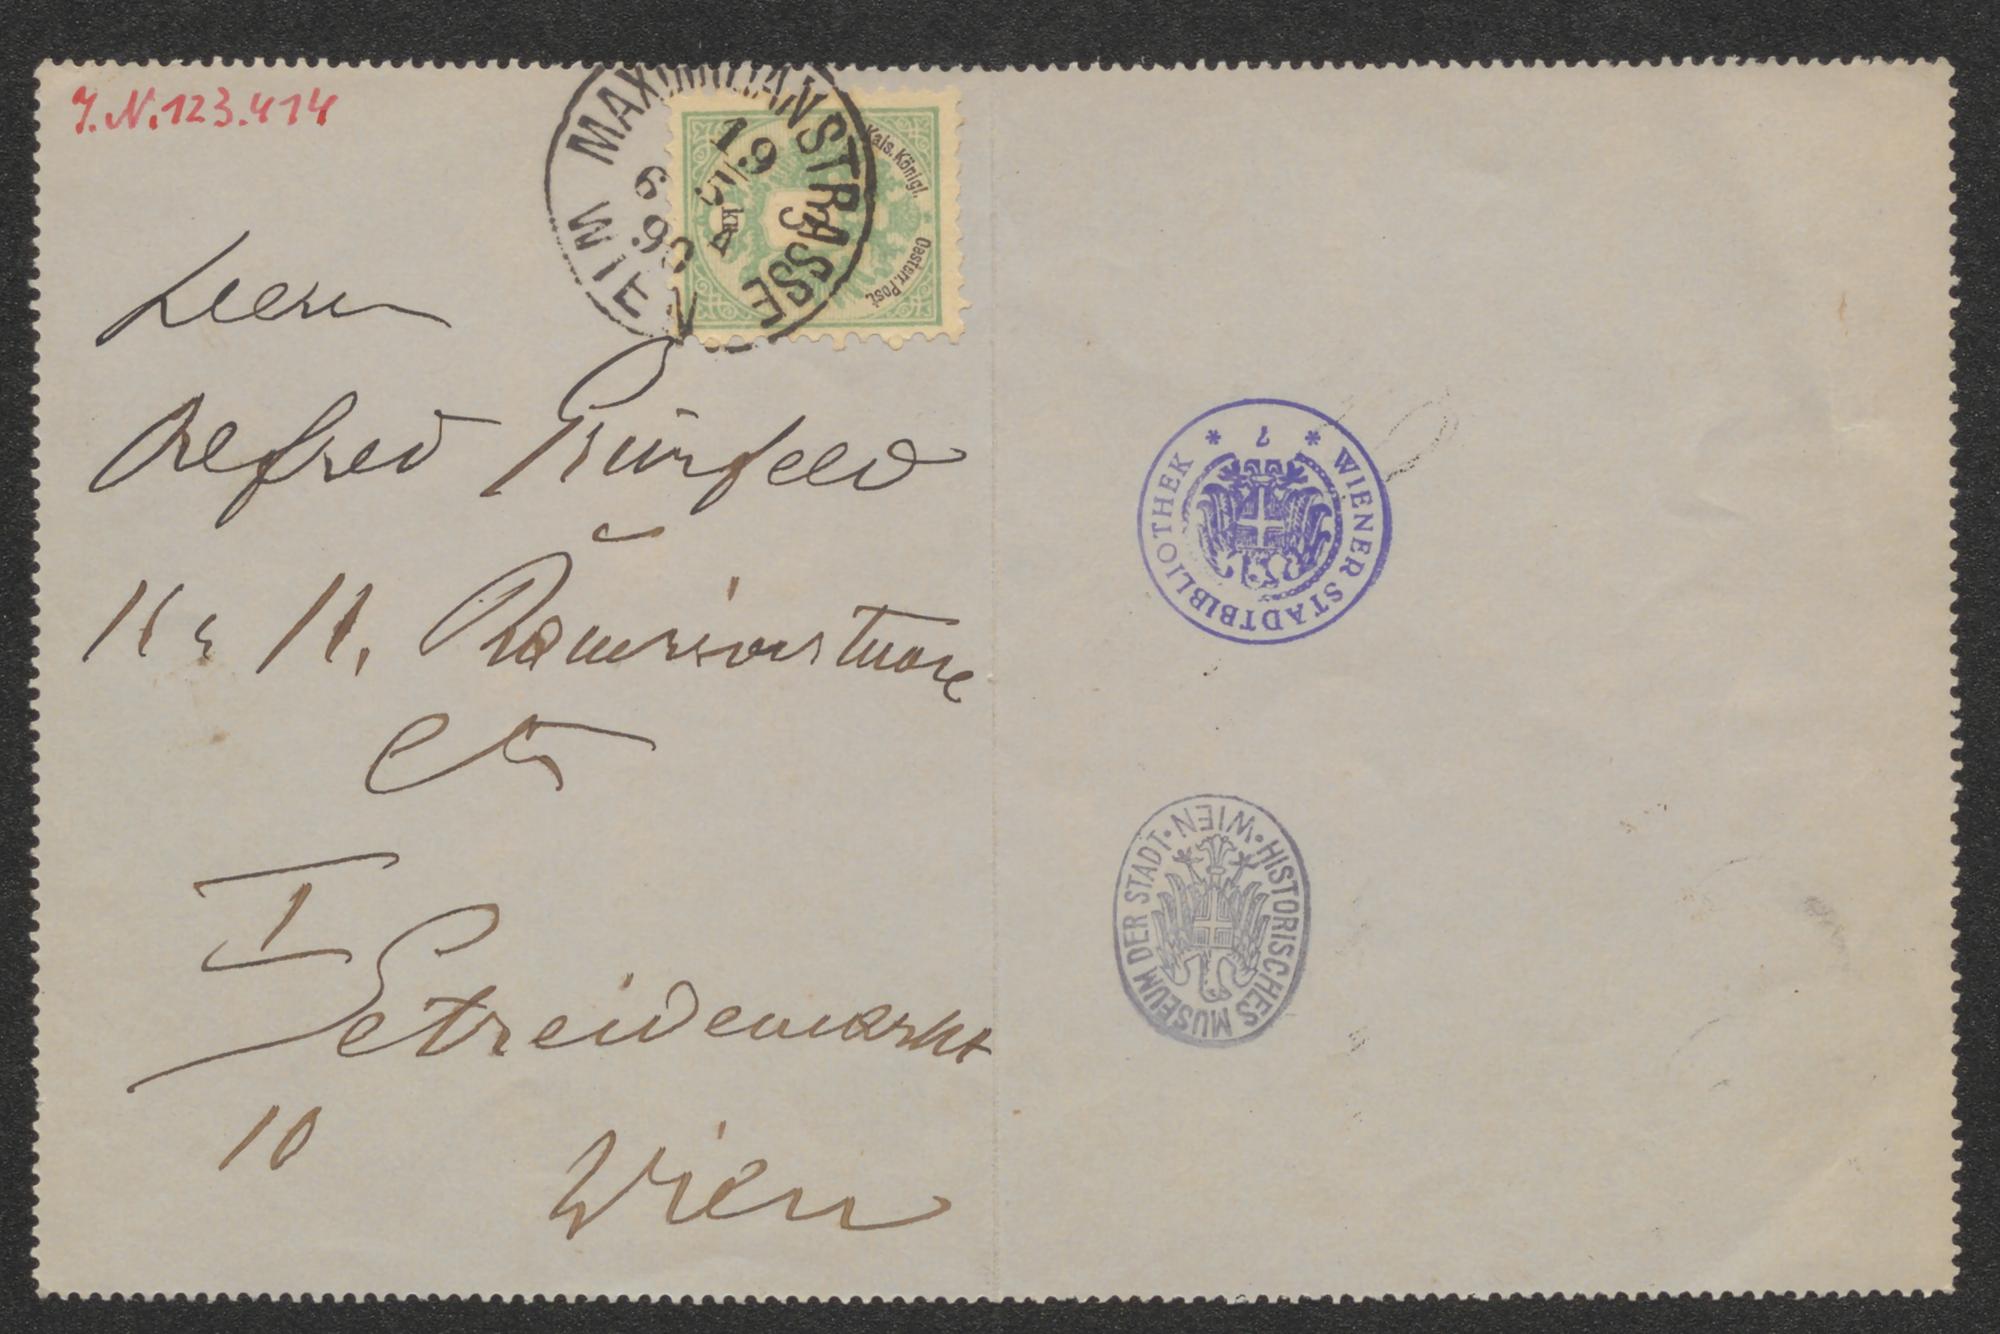 J.N.123.414
WIEN MAXIMILIANSTRASSE
19
6 90
3 kr
Kais. Königl.
Oesterr. Post
Herrn
Alfred Grünfeld
K. K.
etc
I
Getreidemarkt
10 Wien
* WIENER STADTBIBLIOTHEK *
HISTORISCHES MUSEUM DER STADT • WIEN •